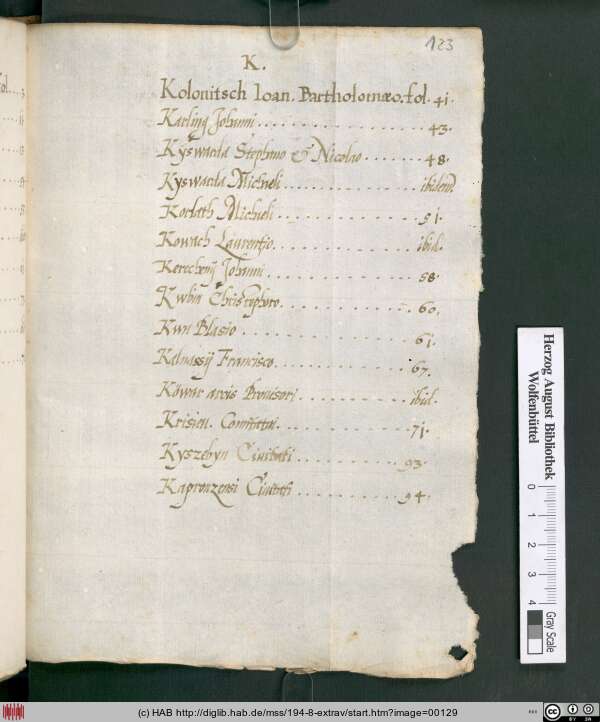 123
K.
Kolonitsch Ioan. Bartholomæo. fol. 41.
Karling Johanni . . . . . . . . . . . . 43.
Kÿswarda Stephano & Nicolao . . . . . . . 48.
Kyswarda Michaeli . . . . . . . . . . . . ibidem.
Korlath Michaeli . . . . . . . . . . . . 51.
Kowach Laurentio . . . . . . . . . . . . ibid.
Kerechenij Johanni . . . . . . . . . . . . 58.
Kwbin Christophoro . . . . . . . . . . . . 60.
Kwn Blasio . . . . . . . . . . . . 61.
Kalnassÿ Francisco . . . . . . . . . . . . 67.
Köwár arcis Prouisori . . . . . . . . . ibid.
Krisien. Comitatui . . . . . . . . . . . . 71.
Kyszebyn Ciuitati . . . . . . . . . . 93.
Kapronzensi Ciuitati . . . . . . . . . . 94.
Herzog August Bibliothek
Wolfenbüttel
0 1 2 3 4
Gray Scale
(c) HAB http://diglib.hab.de/mss/194-8-extrav/start.htm?image=00129